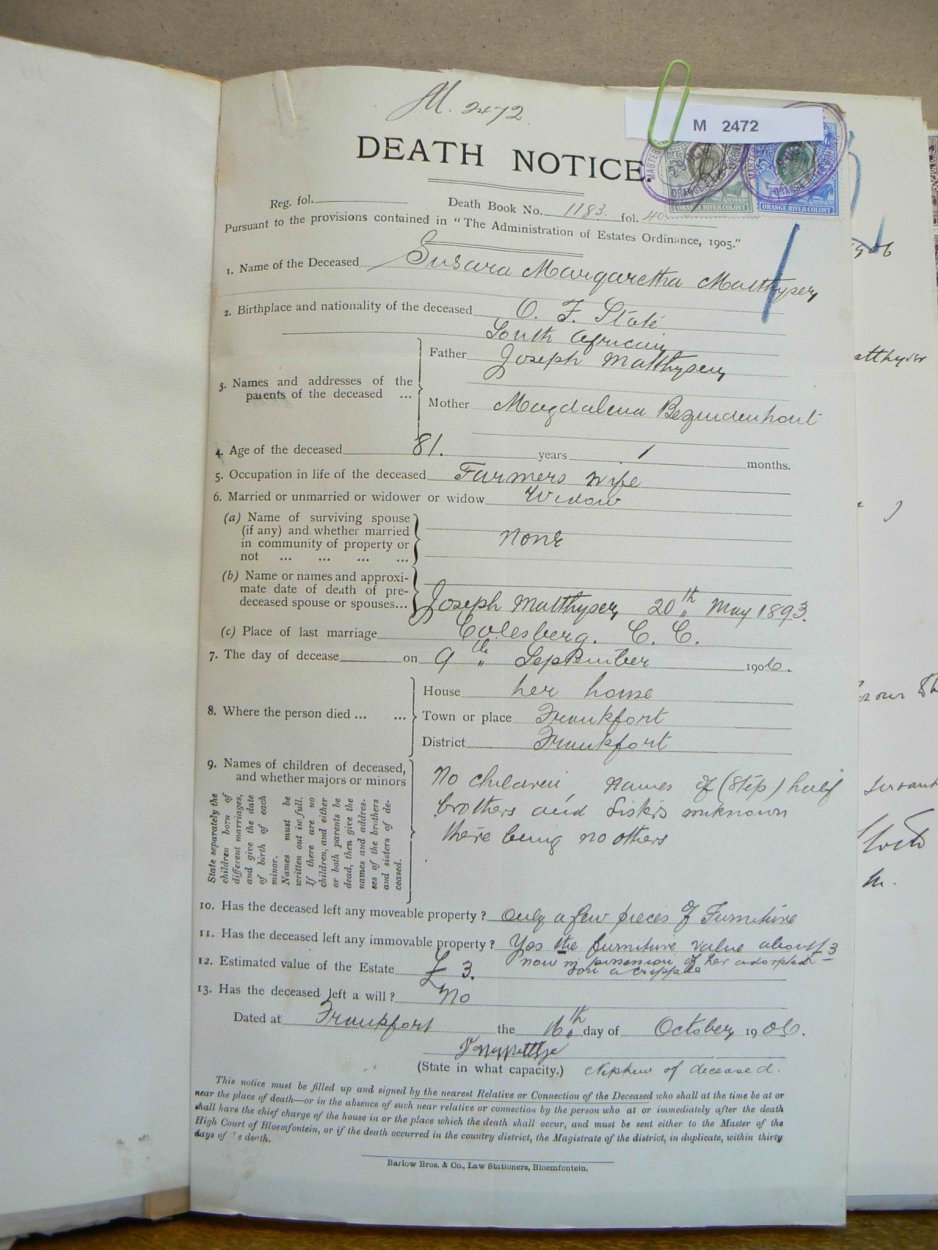 M. 2472
M 2472
DEATH NOTICE.
ORANGE RIVER COLONY ORANGE RIVER COLONY
Reg. fol. Death Book No. 1183 fol. 40
Pursuant to the provisions contained in "The Administration of Estates Ordinance, 1905."
1. Name of the Deceased Susara Margaretha Matthysen
2. Birthplace and nationality of the deceased O. F. State
South African
3. Names and addresses of the parents of the deceased ...
Father Joseph Matthysen
Mother Magdalena Bezuidenhout
4. Age of the deceased 81. years 1 months.
5. Occupation in life of the deceased Farmers wife
6. Married or unmarried or widower or widow Widow
(a) Name of surviving spouse
(if any) and whether married
in community of property or
not ... ... ... ...
None
(b) Name or names and approxi-
mate date of death of pre-
deceased spouse or spouses...
Joseph Matthysen 20th May 1893.
(c) Place of last marriage Colesberg. C. C.
7. The day of decease on 9th September 1906.
8. Where the person died ... ...
House her home
Town or place Frankfort
District Frankfort
9. Names of children of deceased,
and whether majors or minors
State separately the
children born of
different marriages,
and give the date
of birth of each
minor.
Names must be
written out in full.
If there are no
children, and either
or both parents be
dead, then give the
names and address-
es of the brothers
and sisters of de-
ceased.
No children, names of (step) half
brothers and sisters unknown
there being no others
10. Has the deceased left any moveable property? Only a few pieces of Furniture
11. Has the deceased left any immovable property? Yes the furniture value about £3
now in possession of her adopted
son a cripple
12. Estimated value of the Estate £ 3.
13. Has the deceased left a will? No
Dated at Frankfort the 16th day of October 1906.
(State in what capacity.) Nephew of deceased.
This notice must be filled up and signed by the nearest Relative or Connection of the Deceased who shall at the time be at or
near the place of death—or in the absence of such near relative or connection by the person who at or immediately after the death
shall have the chief charge of the house in or the place which the death shall occur, and must be sent either to the Master of the
High Court of Bloemfontein, or if the death occurred in the country district, the Magistrate of the district, in duplicate, within thirty
days of the death.
Barlow Bros. & Co., Law Stationers, Bloemfontein.